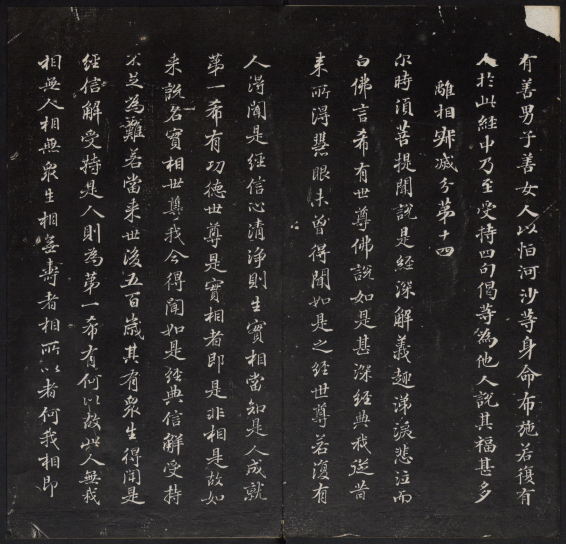 有善男子善女人以恒河沙等身命布施若復有
人於此經中乃至受持四句偈等為他人說其福甚多
離相寂滅分第十四
尔時須菩提聞說是經深解義趣涕淚悲泣而
白佛言希有世尊佛說如是甚深經典我從昔
来所得慧眼未曾得聞如是之經世尊若復有
人得聞是經信心清淨則生實相當知是人成就
第一希有功德世尊是實相者即是非相是故如
来說名實相世尊我今得聞如是經典信解受持
不足為難若當来世後五百歲其有衆生得聞是
經信解受持是人則為第一希有何以故此人無我
相無人相無衆生相無壽者相所以者何我相即